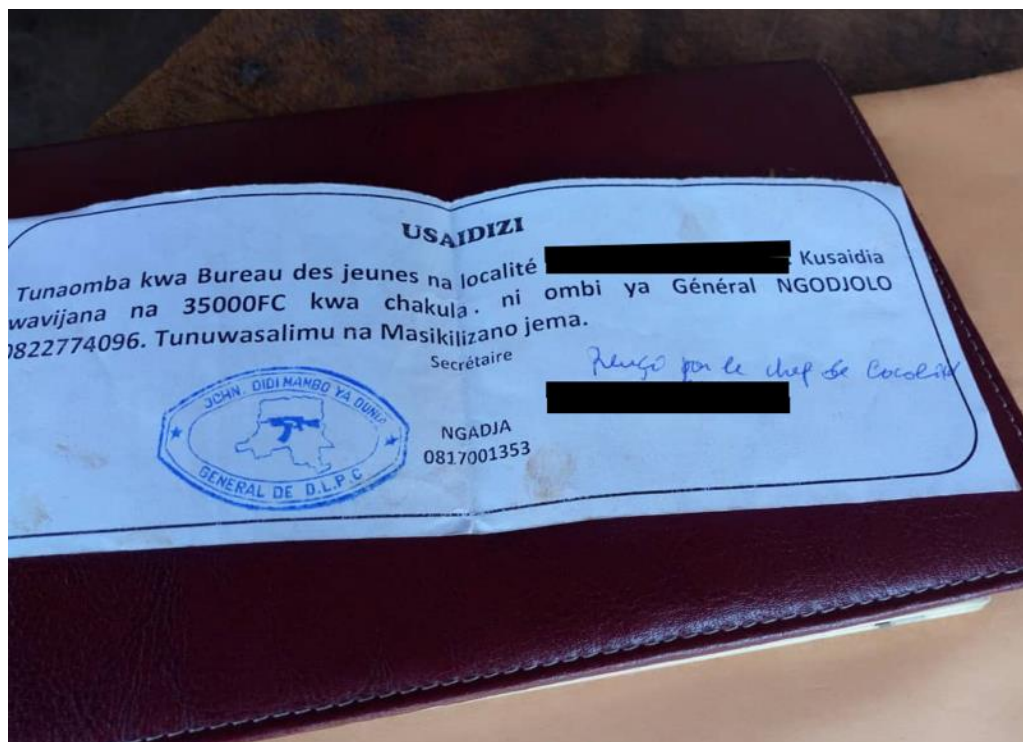 USAIDIZI
Tunaomba kwa Bureau des jeunes na localité Kusaidia
wavijana na 35000FC kwa chakula. ni ombi ya Général NGODJOLO
0822774096. Tunuwasalimu na Masikilizano jema.
Secrétaire
par le chef de
NGADJA
0817001353
JCHN. DIDI MAMBO YA
GENERAL DE D.L.P.C